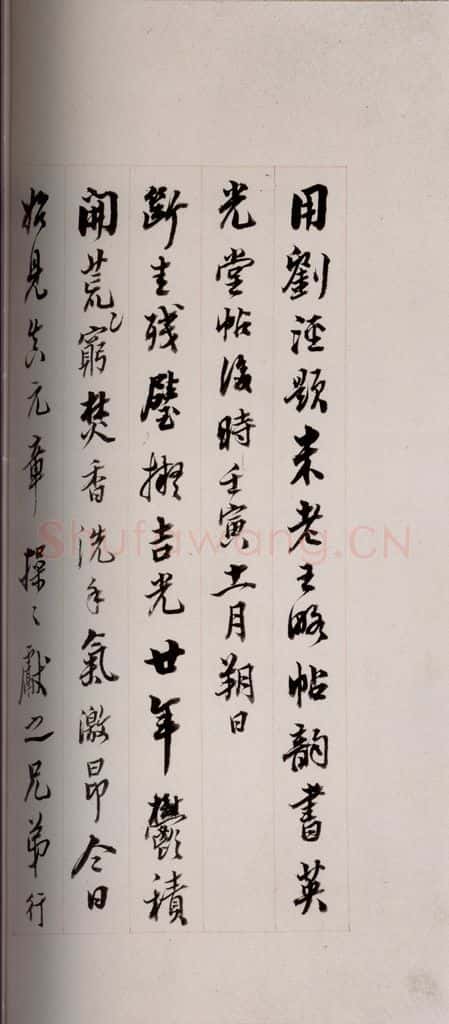 用劉涇題米老王略帖韻書英
光堂帖後時壬寅十一月朔日
斷圭残璧擬吉光廿年鬱積
開荒窮焚香洗手氣激昂今日
始見真元章操之獻之兄弟行
Shufawang.CN